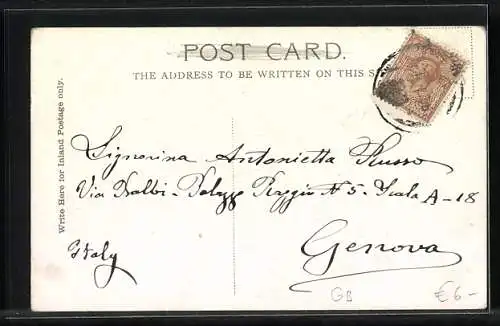 POST CARD.
THE ADDRESS TO BE WRITTEN ON THIS S
Write Here for Inland Postage only.
Signorina Antonietta Russo
Via Balbi - Palazzo Reggio N 5 - Scala A - 18
Genova
Italy
GB
€ 6 -